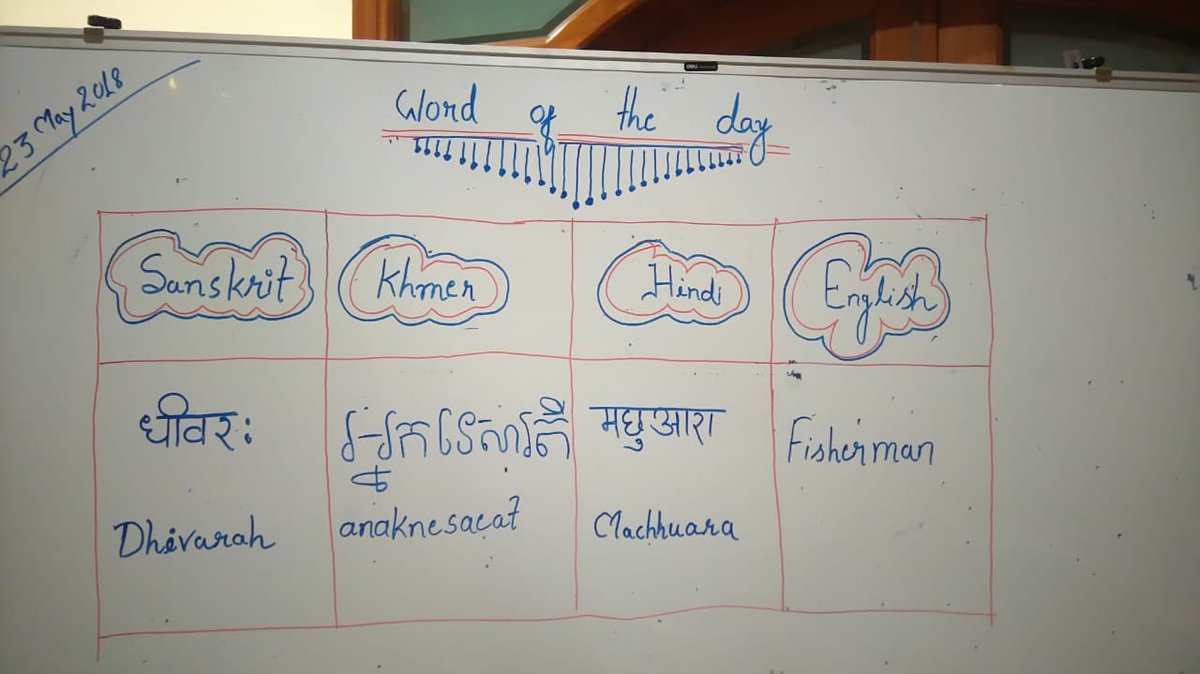 23 May 2018
deli
Word of the day
Sanskrit Khmer Hindi English
धीवरः मछुआरा Fisherman
Dhivarah anaknesacat Machhuara